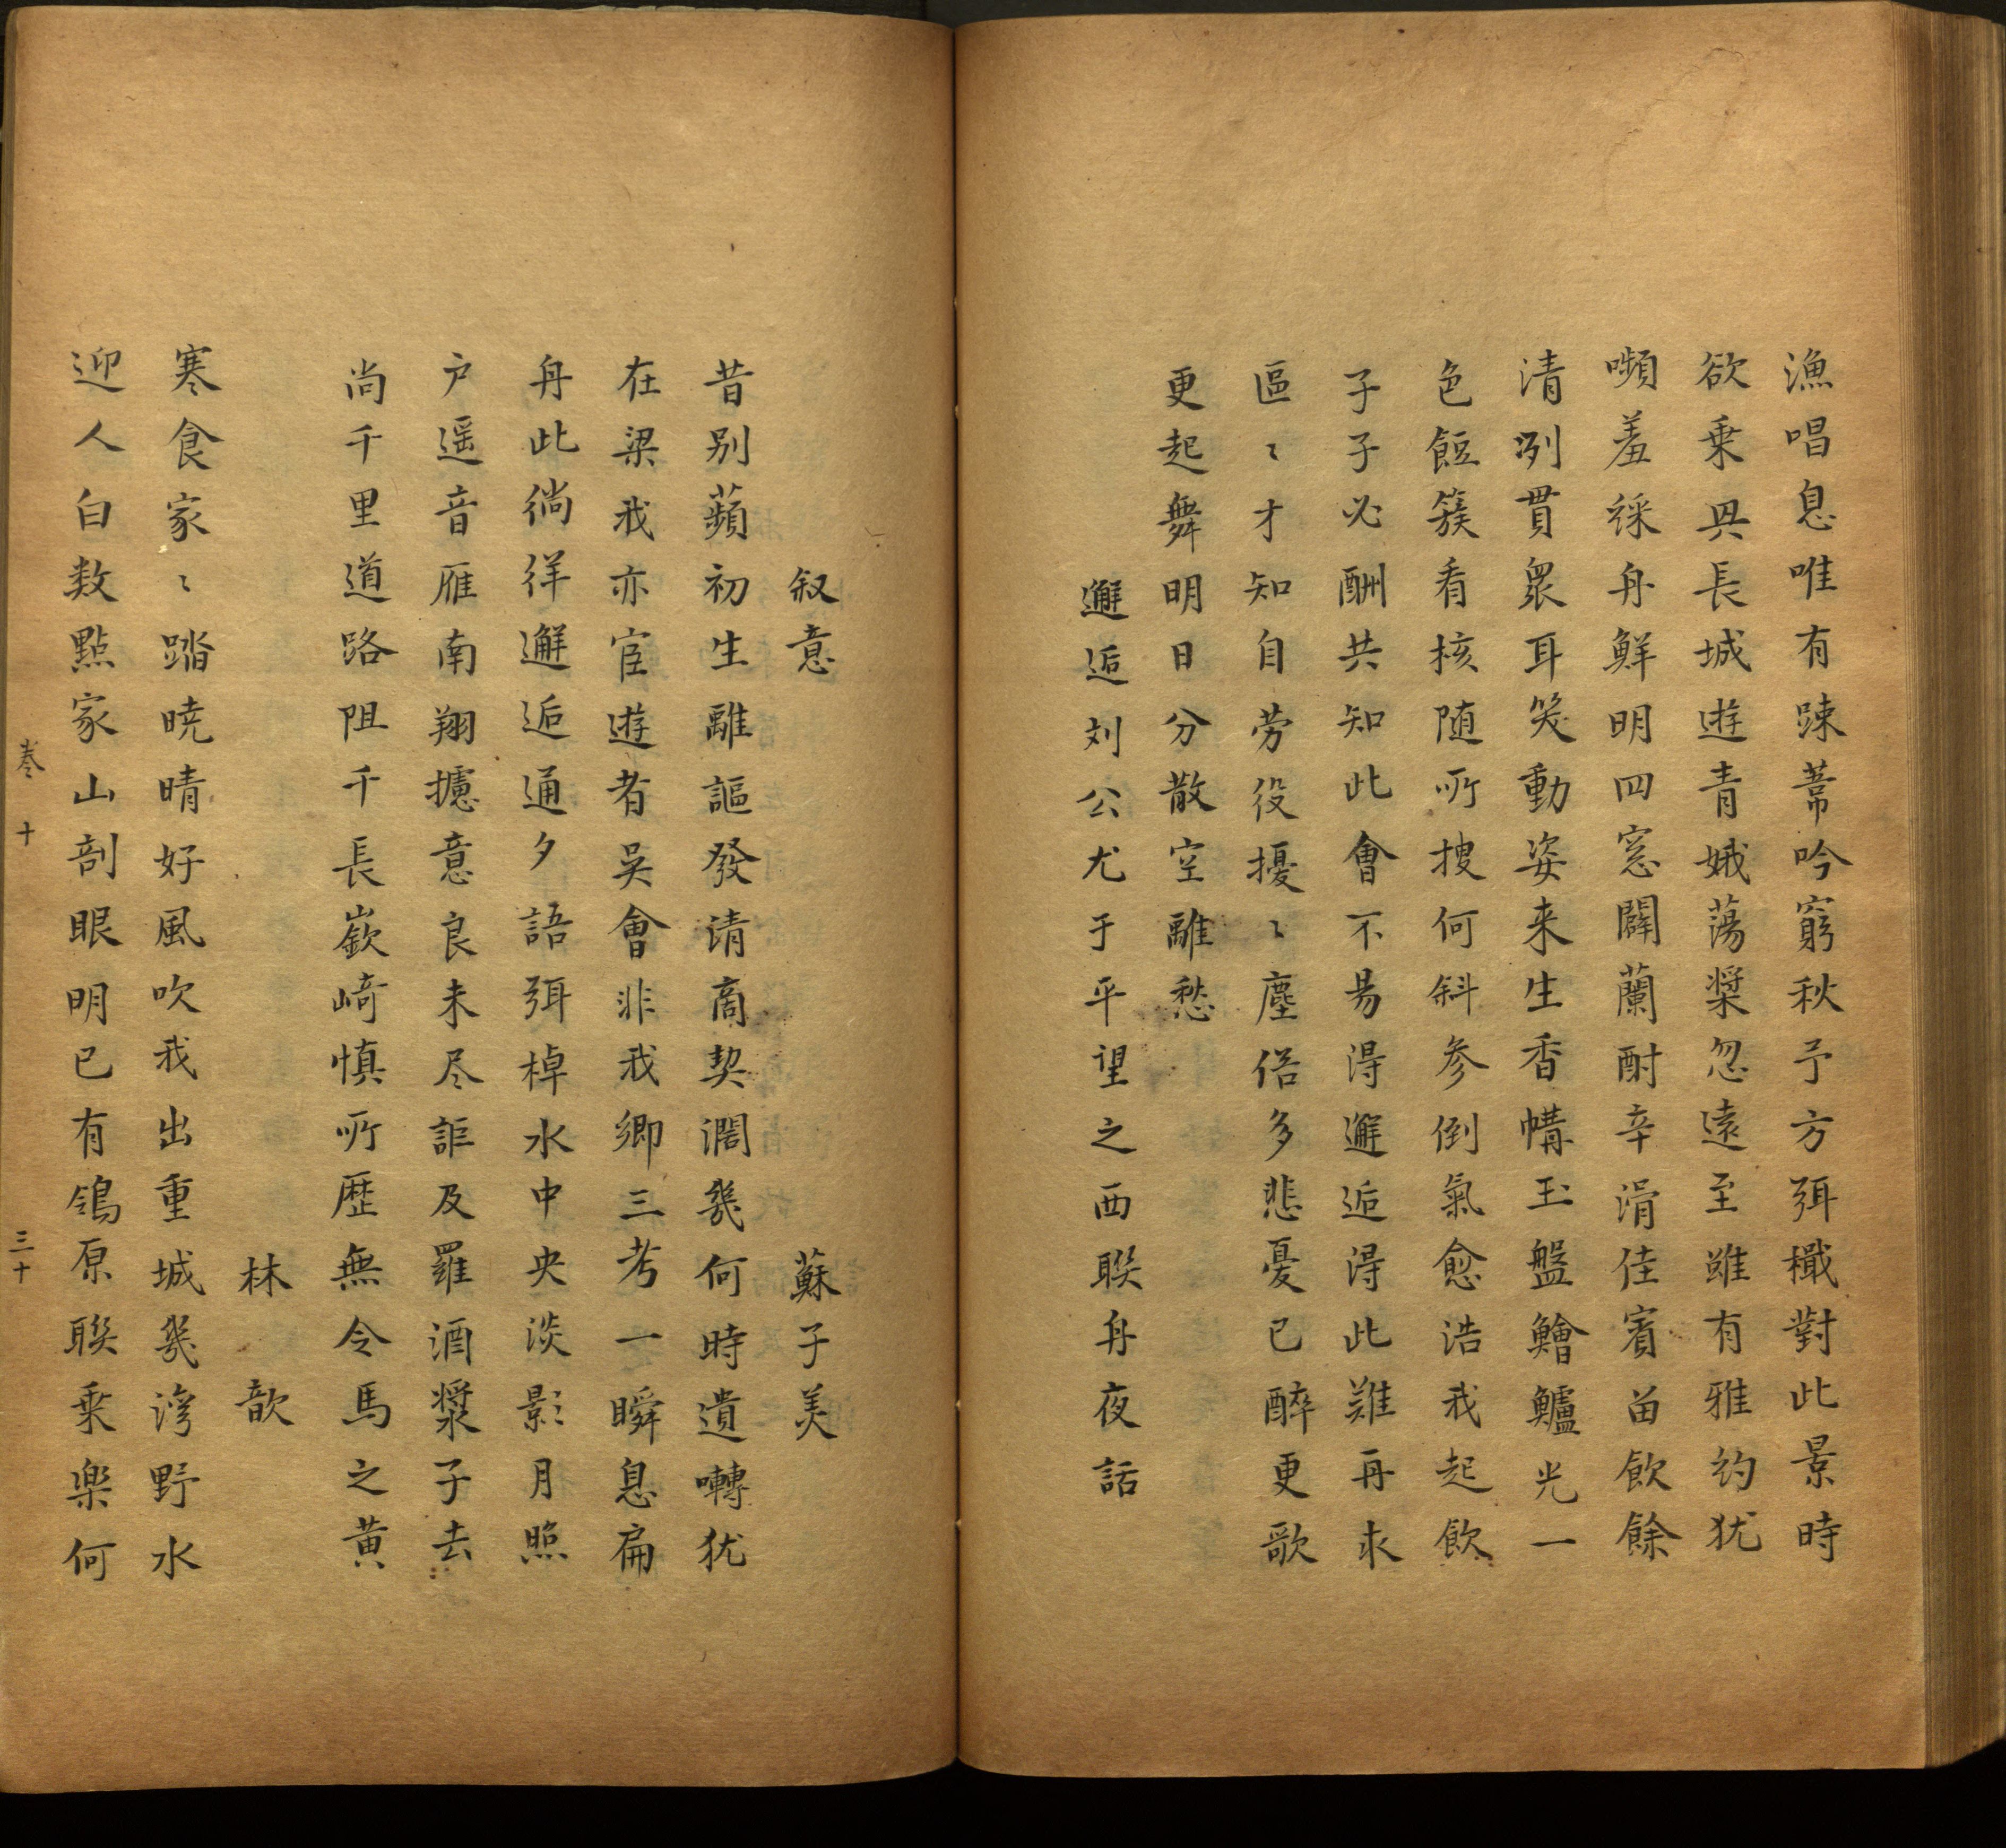 漁唱息唯有踈葦吟窮秋予方弭檝對此景時
欲乗興長城遊青娥蕩槳忽遠至雖有雅約犹
嚬羞綵舟鮮明四窓闢蘭酎辛滑佳賓留飲餘
清冽貫衆耳笑動姿来生香幬玉盤鱠鱸光一
色飣簇看核随所搜何斜参倒氣愈浩我起飲
子子必酬共知此會不易得邂逅得此難再求
區〻才知自劳役擾〻塵俗多悲憂已醉更歌
更起舞明日分散空離愁
邂逅刘公尤于平望之西聮舟夜話
叙意　蘇子美
昔别蘋初生離謳發请商契濶幾何時遺囀犹
在梁我亦宦遊者吴會非我鄉三考一瞬息扁
舟此徜徉邂逅通夕語弭棹水中央淡影月照
户遥音雁南翔攄意良未尽詎及羅酒漿子去
尚千里道路阻千長嶔崎慎所歴無令馬之黄
林歆
寒食家〻踏曉晴好風吹我出重城幾湾野水
迎人白数點家山剖眼明已有鴒原聮乗樂何
卷十　三十